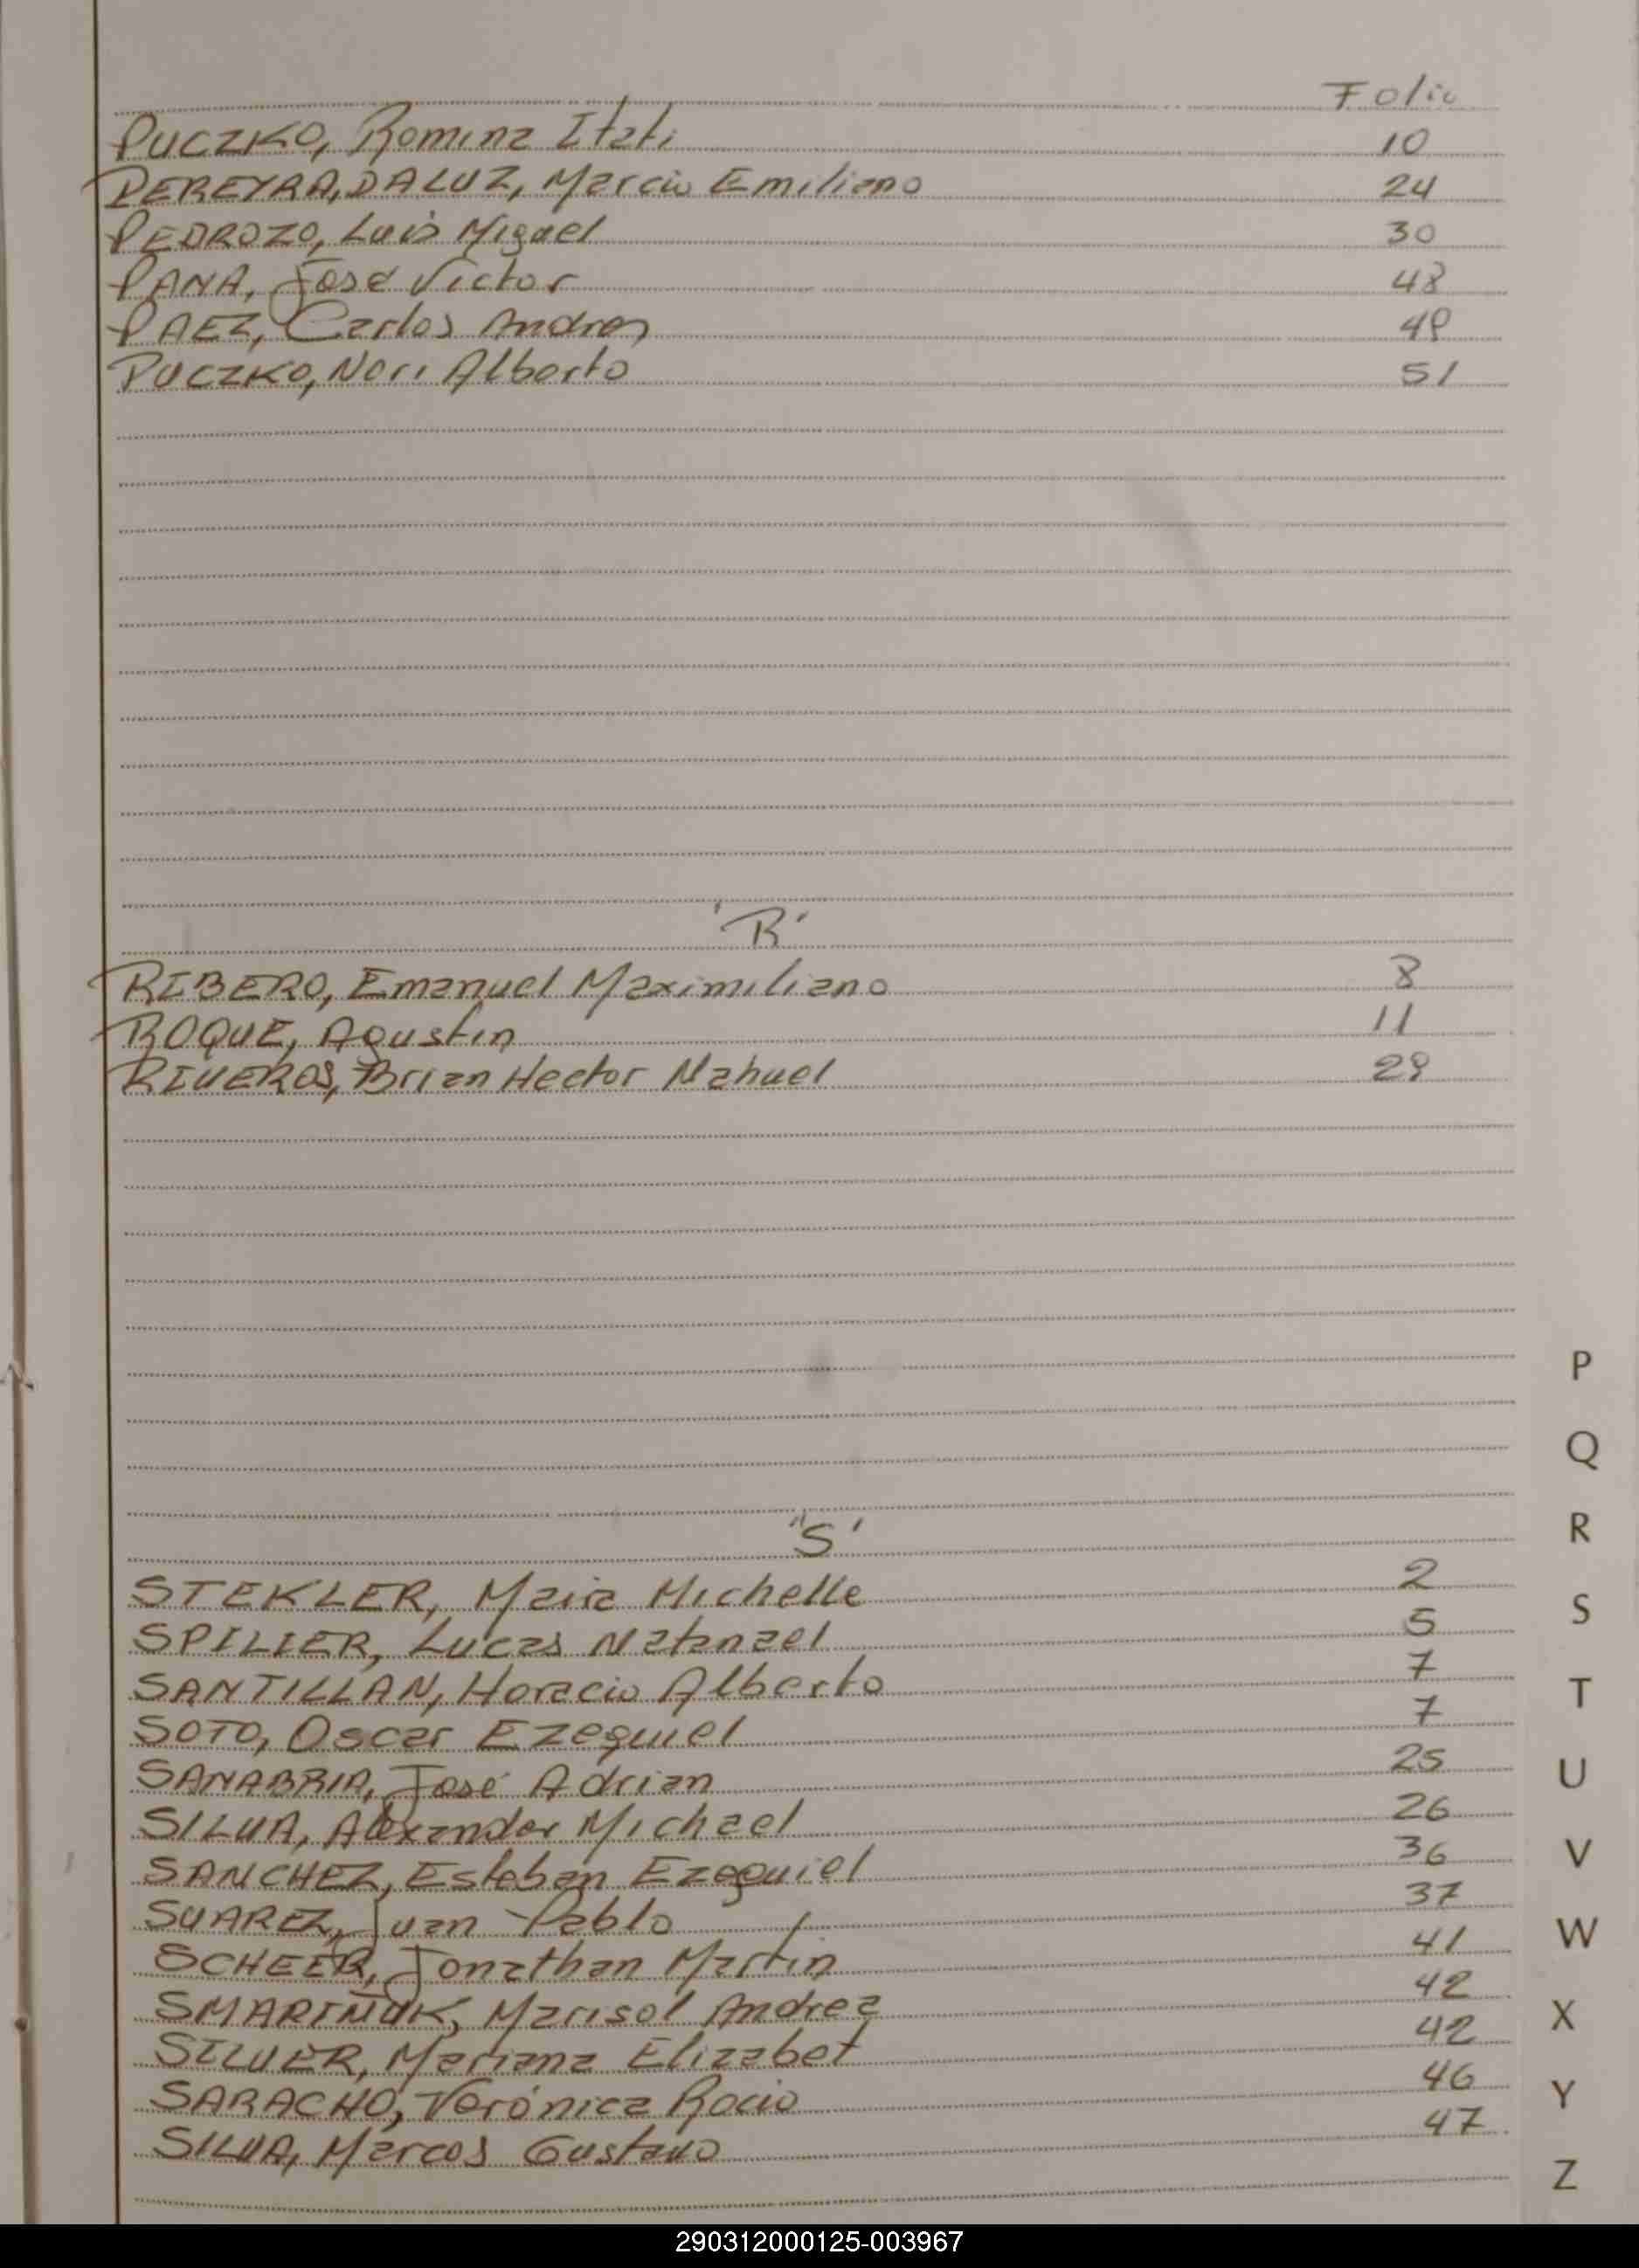 Folio
PUCZKO, Romina Itati 10
PEREYRA, DA LUZ, Marcio Emiliano 24
PEDROZO, Luis Miguel 30
PANA, José Victor 48
PAEZ, Carlos Andres 49
PUCZKO, Nori Alberto 51
"R"
RIBERO, Emanuel Maximiliano 8
ROQUE, Agustin 11
RIVEROS, Brian Hector Nahuel 29
"S"
STEKLER, Maira Michelle 2
SPILIER, Lucas Natanael 5
SANTILLAN, Horacio Alberto 7
SOTO, Oscar Ezequiel 7
SANABRIA, José Adrian 25
SILVA, Alexander Michael 26
SANCHEZ, Esteban Ezequiel 36
SUAREZ, Juan Pablo 37
SCHEER, Jonathan Martin 41
SMARINUK, Marisol Andrea 42
SILVER, Mariana Elizabet 42
SARACHO, Verónica Rocio 46
SILVA, Marcos Gustavo 47
P
Q
R
S
T
U
V
W
X
Y
Z
290312000125-003967